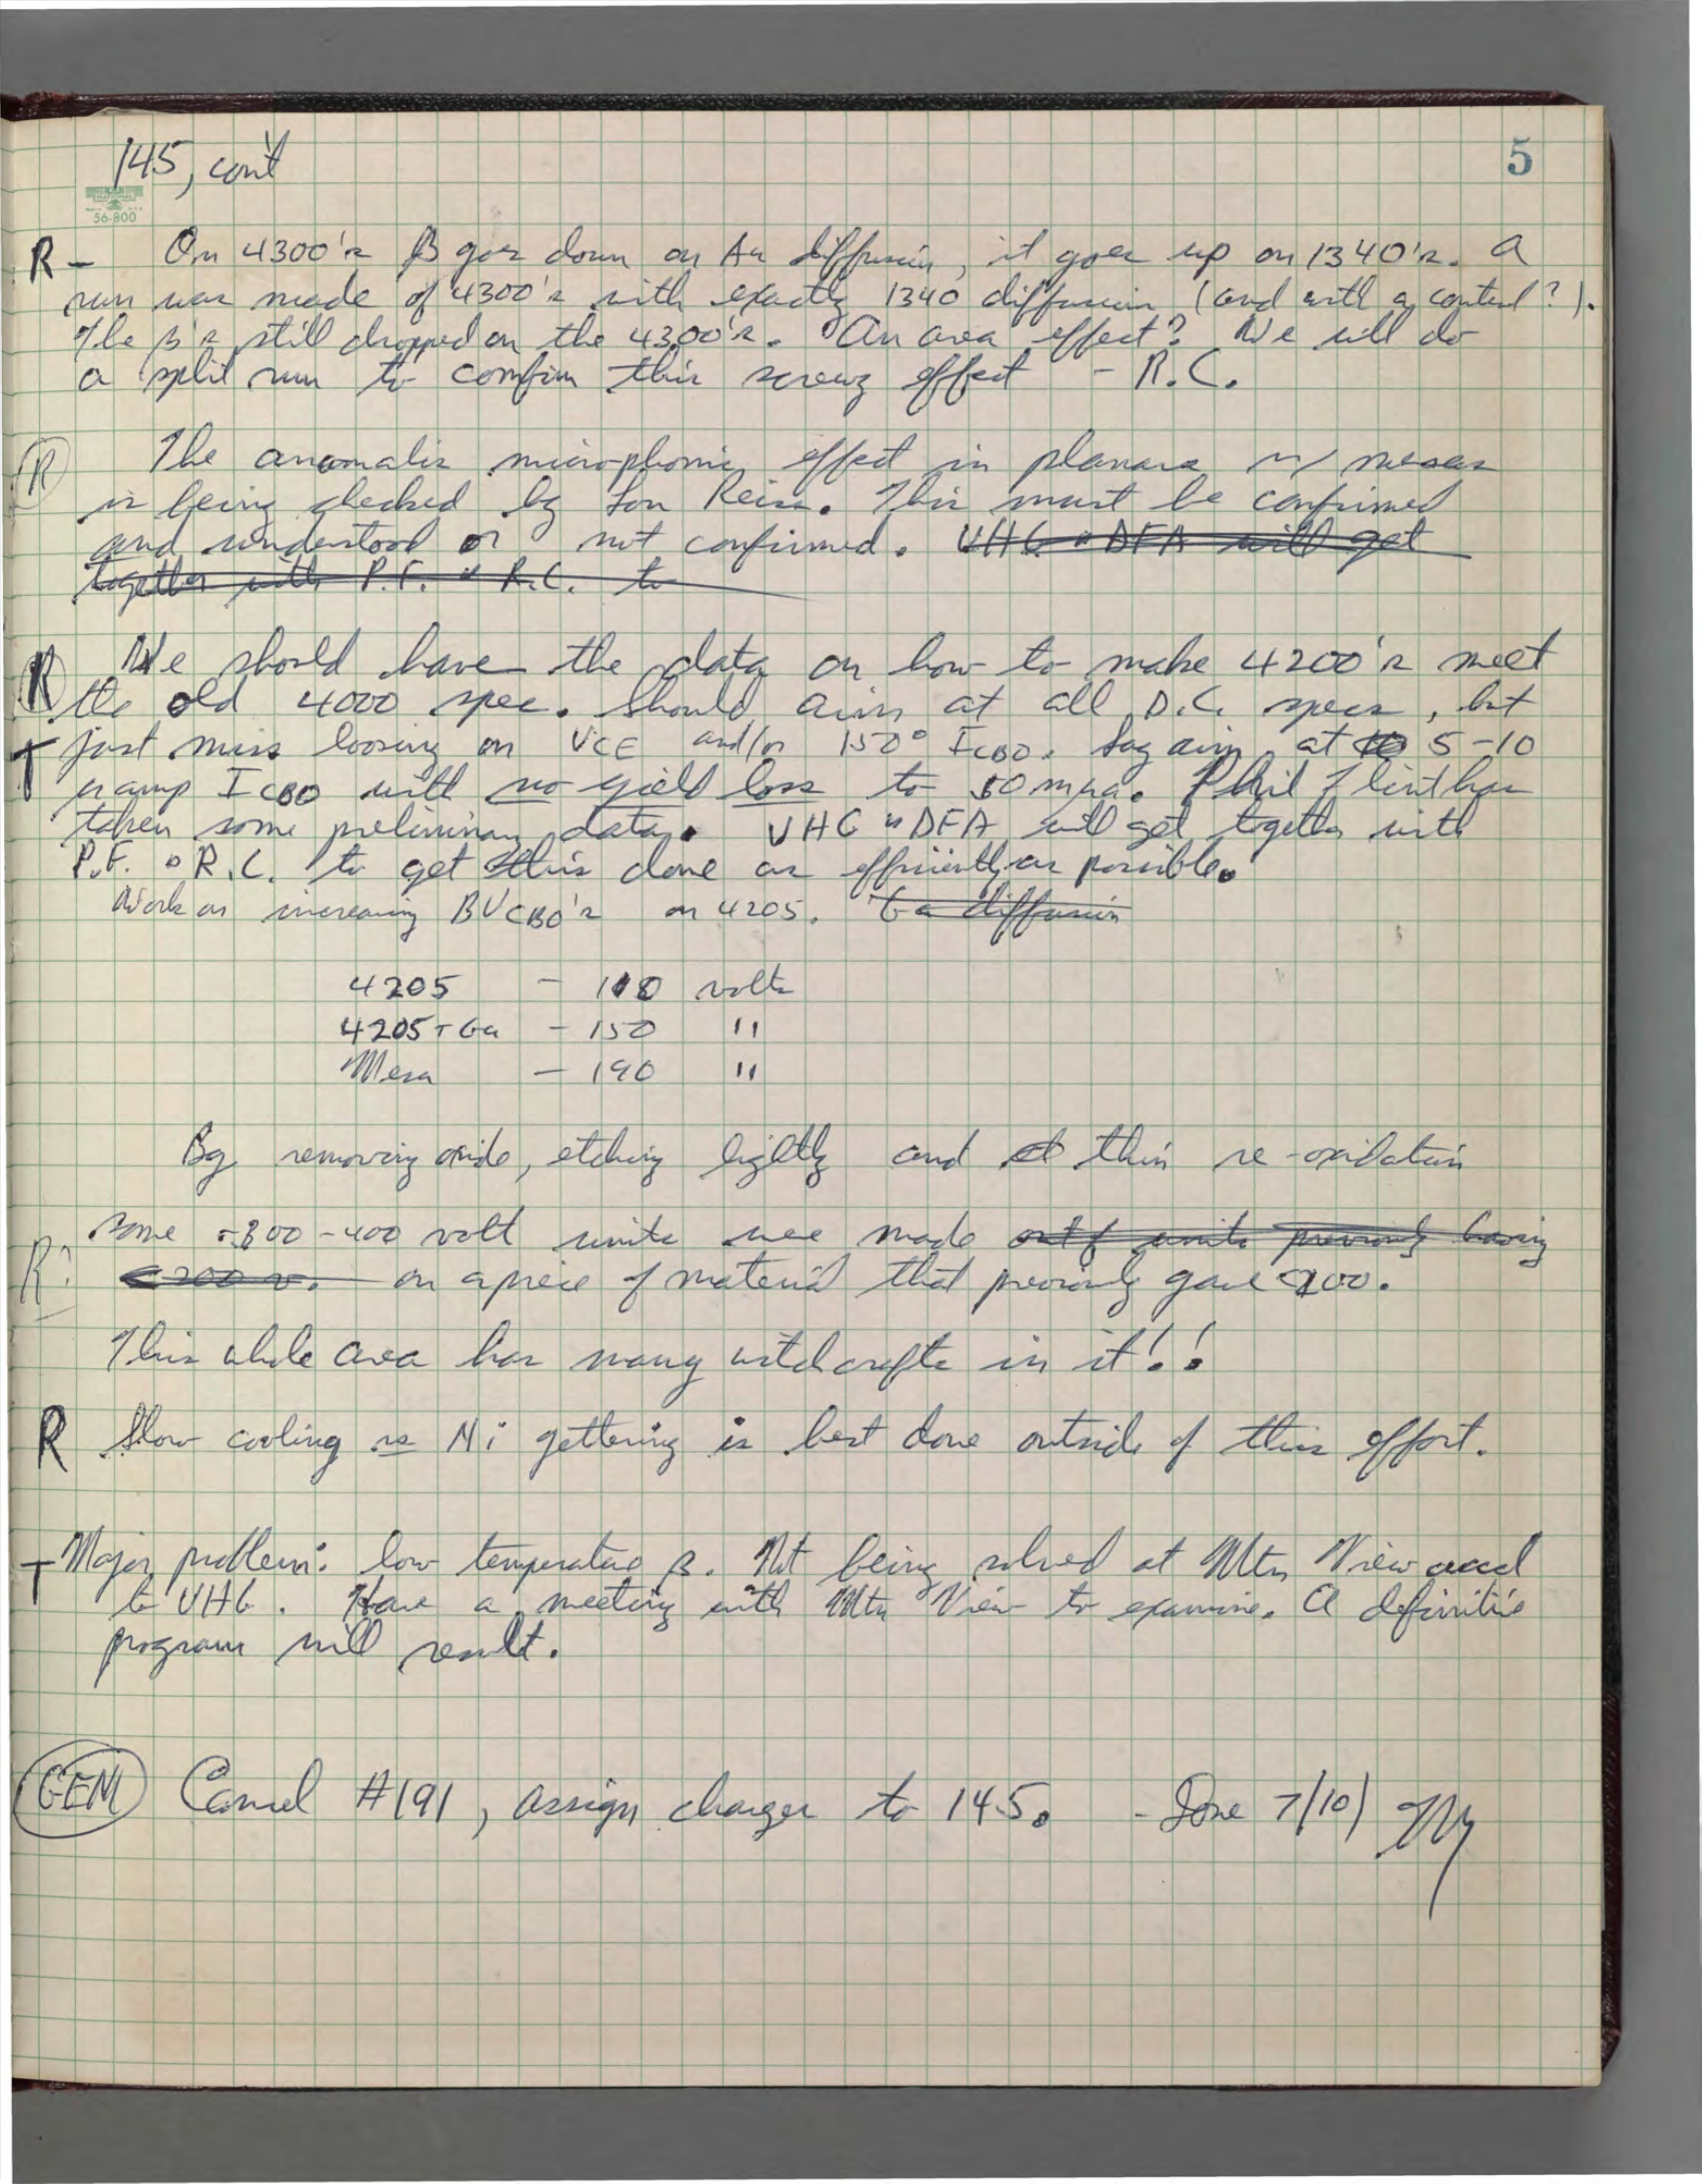 145, con't
5
56-800
R - On 4300's β goes down on Au diffusion, it goes up on 1340's. A
run was made of 4300's with exactly 1340 diffusion (and with a control?).
The β's still dropped on the 4300's. An area effect? We will do
a split run to confirm this screwy effect - R.C.
R The anomalis microphonic effect in planars w/ mesas
is being checked by Lou Reiss. This must be confirmed
and understood or not confirmed. VHG & DFA will get
together with P.F. & R.C. to
R We should have the data on how to make 4200's meet
the old 4000 spec. Should aim at all D.C. specs, but
T just miss loosing on VCE and/or 150° ICBO. Say aim at 5-10
ICBO with no yield loss to 50 mμa. Phil Flint has
taken some preliminary data. VHG & DFA will get together with
P.F. & R.C. to get this done as efficiently as possible.
Work on increasing BVCBO's on 4205. Ga diffusion
4205 - 110 volts
4205 + Ga - 150 "
Mesa - 190 "
By removing oxide, etching lightly and thin re-oxidation
R? some 300-400 volt units were made out of units previously having
<200 v. on a piece of material that previously gave <200.
This whole area has many witchcrafts in it!!
R Slow cooling vs Ni gettering is best done outside of this effort.
T Major problem: low temperature β. Not being solved at Mtn View accd
to VHG. Have a meeting with Mtn View to examine. A definitive
program will result.
GEM Cancel #191, assign charges to 145. - Done 7/10/